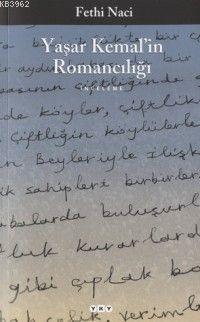 KB3962
Fethi Naci
Yaşar Kemal'in
Romancılığı
İNCELEME
çiftliğin
de köyler, çiftlik
Çiftliğin köylüler
n Beyleriyle ilişk
k sahipleri birbirler
buluşurl
luk kurarlard
gibi çıplak
verim
YKY